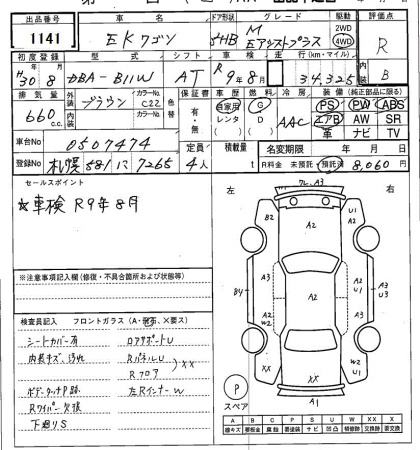 出品番号 車名 ドア形状 グレード 駆動 評価点
1141 EKワゴン 5HB M 2WD 4WD R
初度登録 型式 シフト 車検 走行(km・マイル) 内装
H30 8 DBA-B11W AT R9年8月 34,325 B
排気量 外装 ブラウン カラーNo. C22 色替 保証書 車歴 燃料 冷房 装備(純正部品に限る)
660c.c. 内装 カラーNo. 有 自家用 レンタ G D AAC PS PW ABS
エアB AW SR
革 ナビ TV
車台No 0507474 定員 積載量 名変期限 年 月 日
登録No 札幌 581 に 7265 4人 t R料金 未預託・預託済 8,060円
セールスポイント
☆車検 R9年8月
左 右
※注意事項記入欄(修復・不具合箇所および状態等)
検査員記入 フロントガラス(A・飛石、X要ス)
シートカバー有
内装キズ、汚れ
ボデータッチP跡
Rワイパー欠損
下廻りS
RリアサポートU
RパネルU
Rフロア
××
左RインナーW
A3
B2 A2 U1
A3 A2 A3 A2 U1
B4 U3
A2 W2 W2
XX XX XX
A1
P
スペア
A B C P S U W XX X
線キズ 要板金 腐食 要塗装 サビ 凹凸 補修跡 交換済 要交換